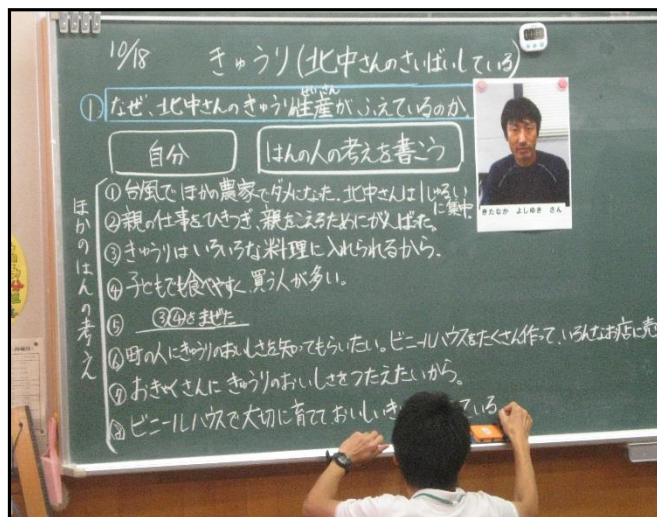 10/18 きゅうり(北中さんのさいばいしている)
① なぜ、北中さんのきゅうり生産がふえているのか。
せいさん
自分
はんの人の考えを書こう
きたなか よしゆき さん
ほかのはんの考え
① 台風でほかの農家でダメになった。北中さんは1しゅるい
に集中
② 親の仕事をひきつぎ、親をこえるためにがんばった。
③ きゅうりはいろいろな料理に入れられるから。
④ 子どもでも食べやすく、買う人が多い。
⑤ ③④をまぜた
⑥ 町の人にきゅうりのおいしさを知ってもらいたい。ビニールハウスをたくさん作って、いろんなお店に売
⑦ おきゃくさんにきゅうりのおいしさをつたえたいから。
⑧ ビニールハウスで大切に育てて、おいしいき ている